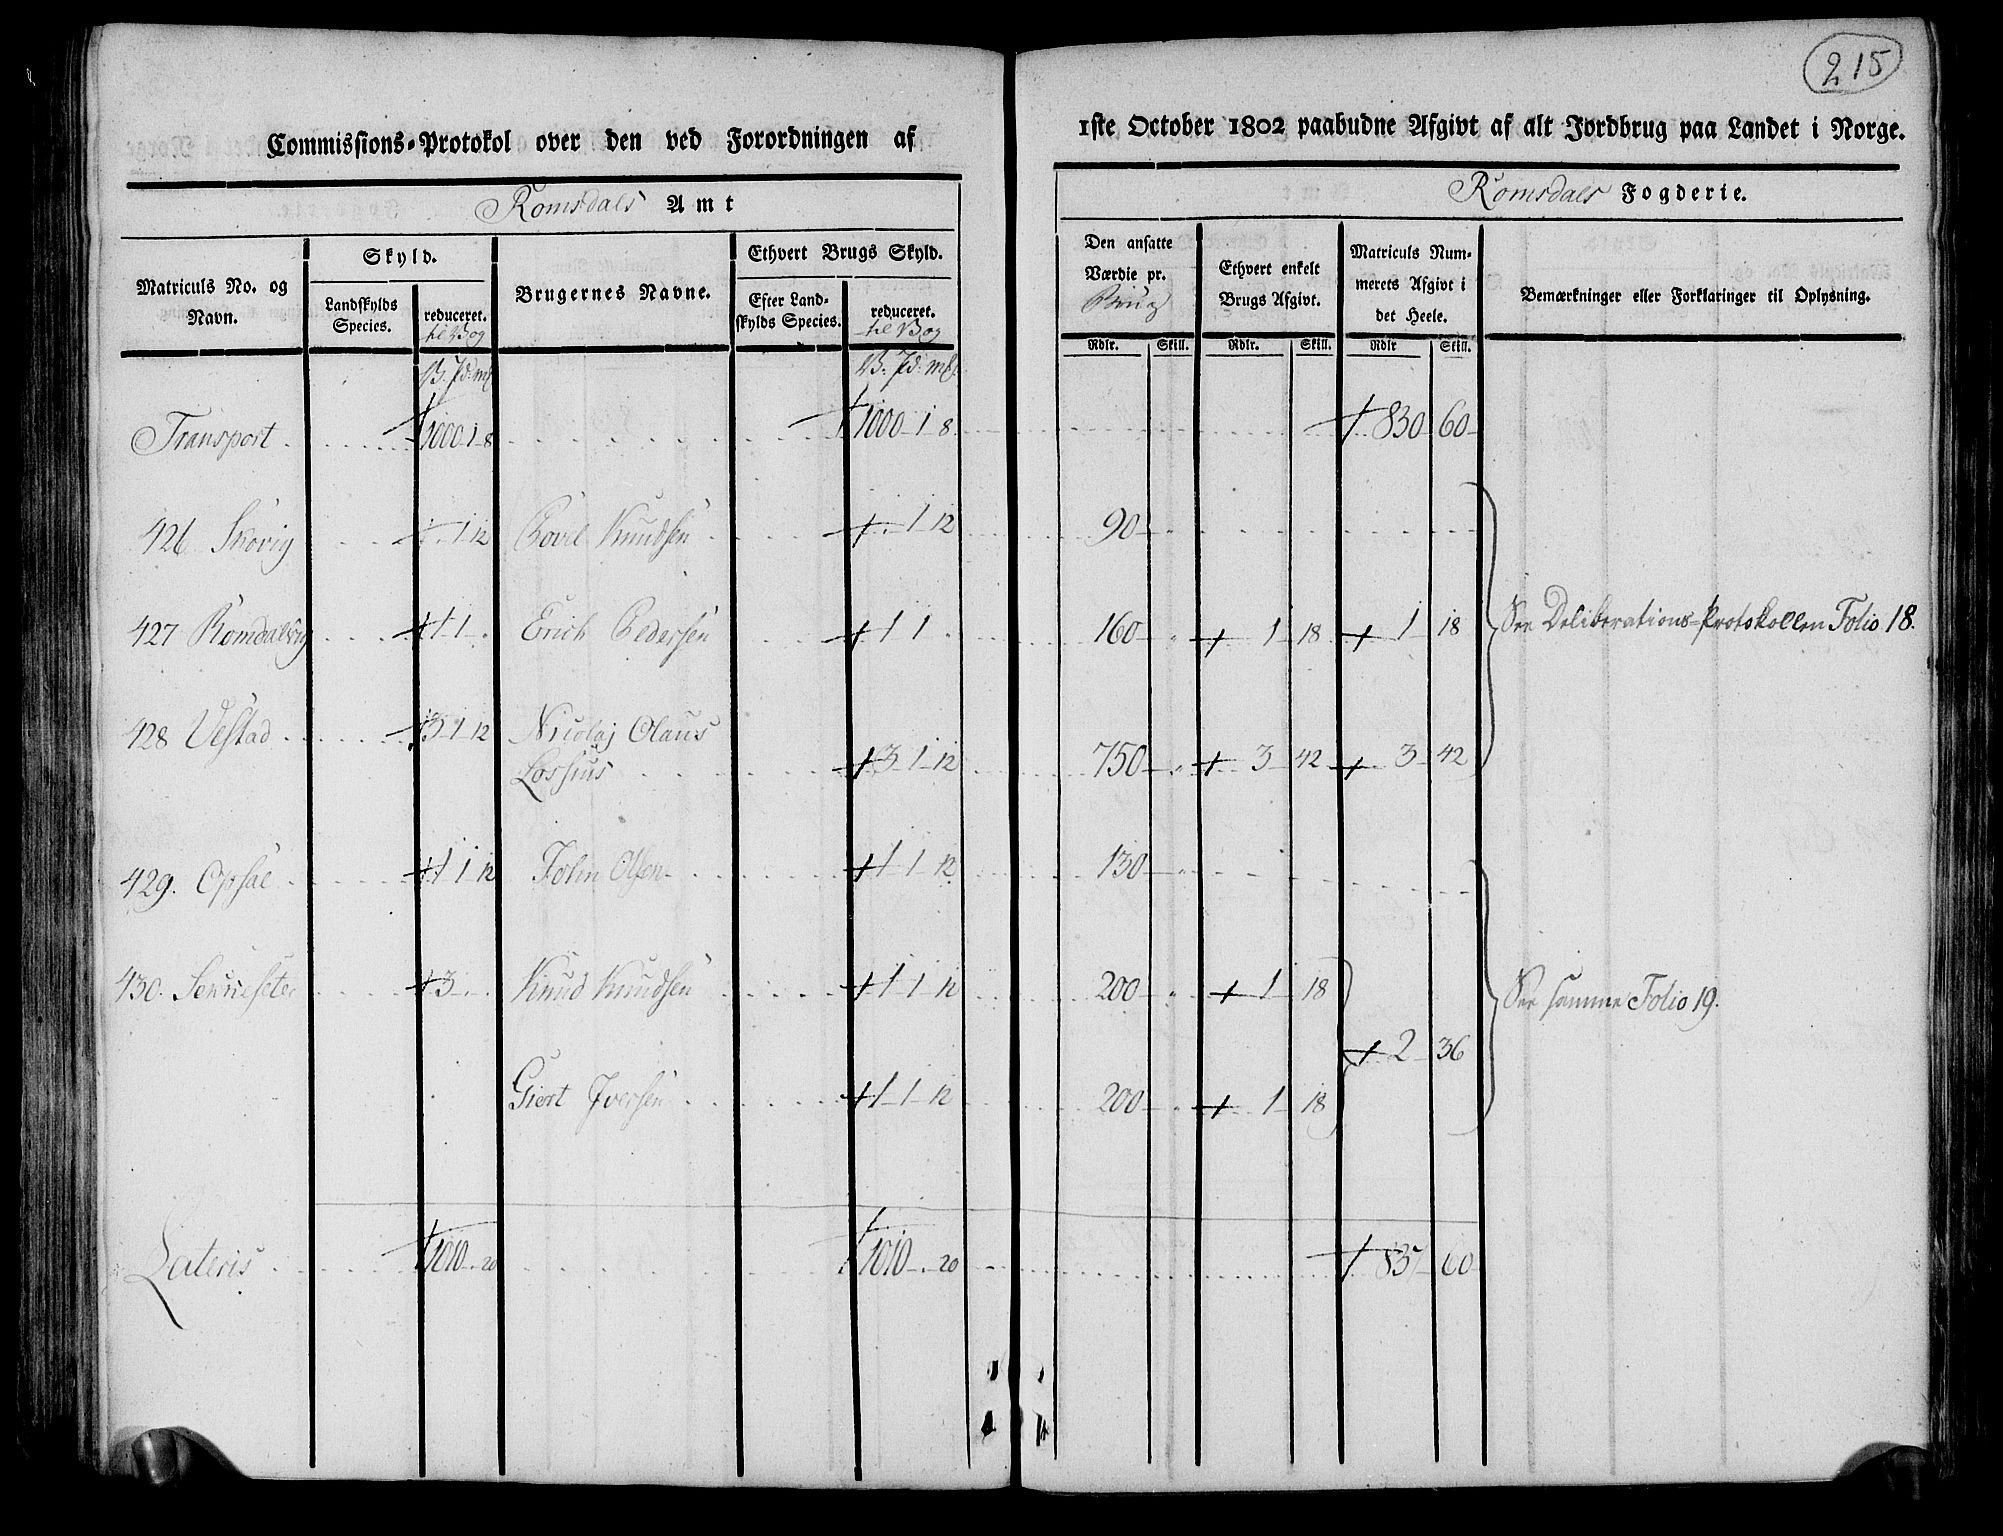 215
Commissions-Protokol over den ved Forordningen af 1ste October 1802 paabudne Afgivt af alt Jordbrug paa Landet i Norge.
Romsdals Amt
Romsdals Fogderie.
Matriculs No. og Navn.
Skyld.
Landskylds Species.
reduceret. til Vog
Brugernes Navne.
Ethvert Brugs Skyld.
Efter Landskylds Species.
reduceret. til Vog
Den ansatte Værdie pr. Brug
Ethvert enkelt Brugs Afgivt.
Matriculs Nummerets Afgivt i det Heele.
Bemærkninger eller Forklaringer til Oplysning.
Rdlr. Skill. Rdlr. Skill. Rdlr Skill.
V. Pd. mk. V. Pd. mk.
Transport 1000 1 8 1000 1 8 830 60
426 Skovig 1 12 Povel Knudsen 1 12 90
427 Romdalsvig 1 1 Erich Pedersen 1 1 160 1 18 1 18 See Deliberations-Protokollen Folio 18.
428 Vestad 3 1 12 Nicolaj Olaus
Lossius 3 1 12 750 3 42 3 42
429. Opsal 1 1 12 John Olsen 1 1 12 130
430. 3 Knud Knudsen 1 1 12 200 1 18 See samme Folio 19.
2 36
Giert Iversen 1 1 12 200 1 18
Lateris 1010 20 1010 20 837 60